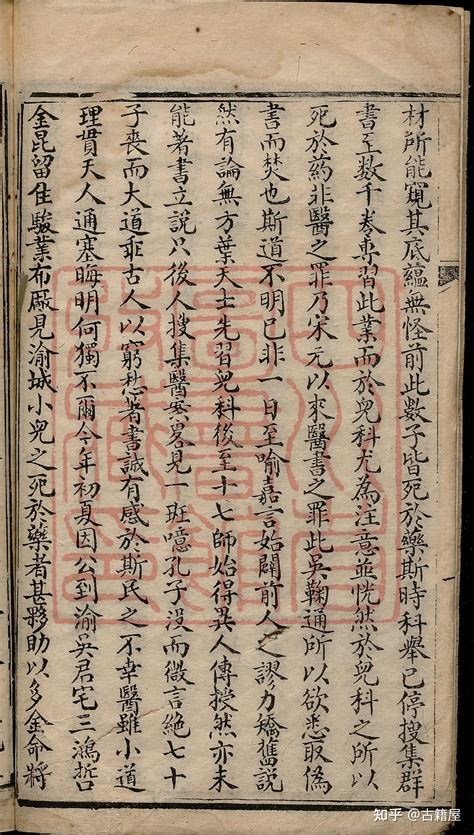 材所能窺其底蘊無怪前此數子皆死於藥斯時科舉已停搜集群
書至数千卷専習此業而於兒科尤為注意並恍然於兒科之所以
死於药非醫之罪乃宋元以來醫書之罪此吳鞠通所以欲悉取偽
書而焚也斯道不明已非一日至喻嘉言始闢前人之謬力矯舊說
然有論無方葉天士先習兒科後至十七師始得異人傳授然亦未
能著書立說只後人搜集醫案畧見一班噫孔子没而微言絕七十
子喪而大道乖古人以窮愁著書誠有感於斯民之不幸醫雖小道
理貫天人通塞晦明何獨不爾今年初夏因公到渝吳君宅三鴻哲
金昆留住駿業布廠見渝城小兒之死於藥者甚夥助以多金命將
知乎 @古籍屋